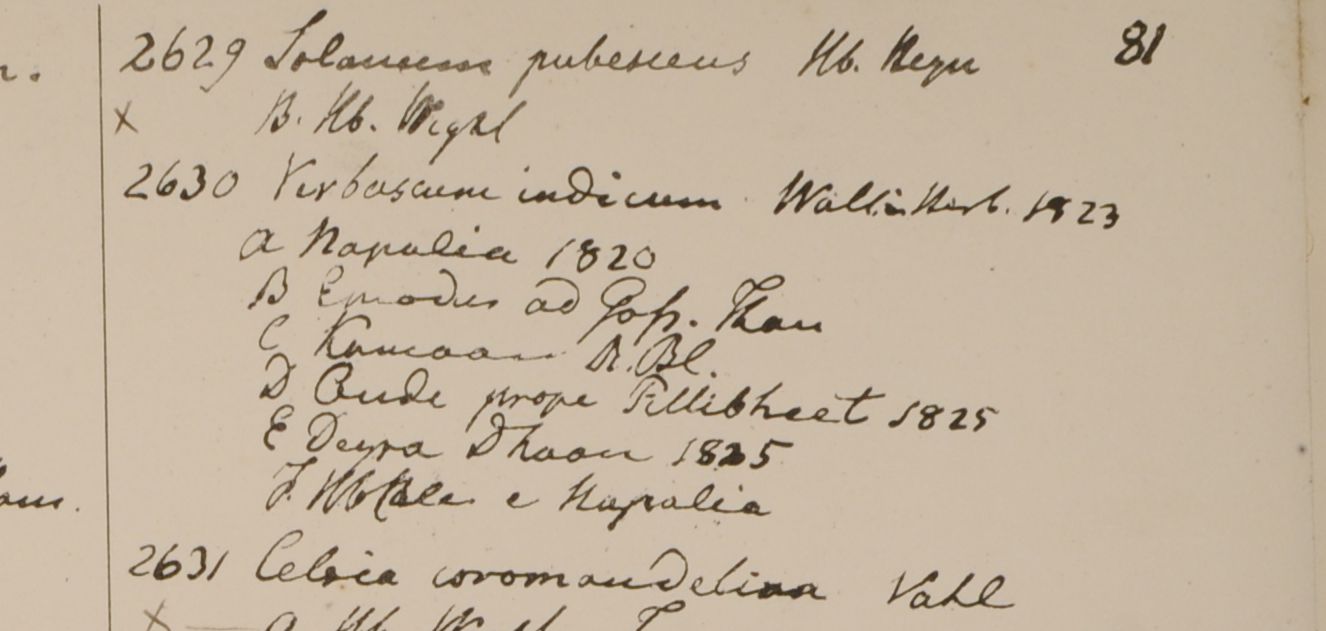 81
2629 Solanum pubescens Hb. Heyn
x B. Hb. Wight
2630 Verbascum indicum Wall. in Herb. 1823
a Napalia 1820
B Emodus ad Gofs. Than
C Kumaon R. Bl.
D Oude prope Pillibheet 1825
E Deyra Dhoon 1825
F. Hb. e Napalia
2631 Celsia coromandeliana Vahl
x a Hb.